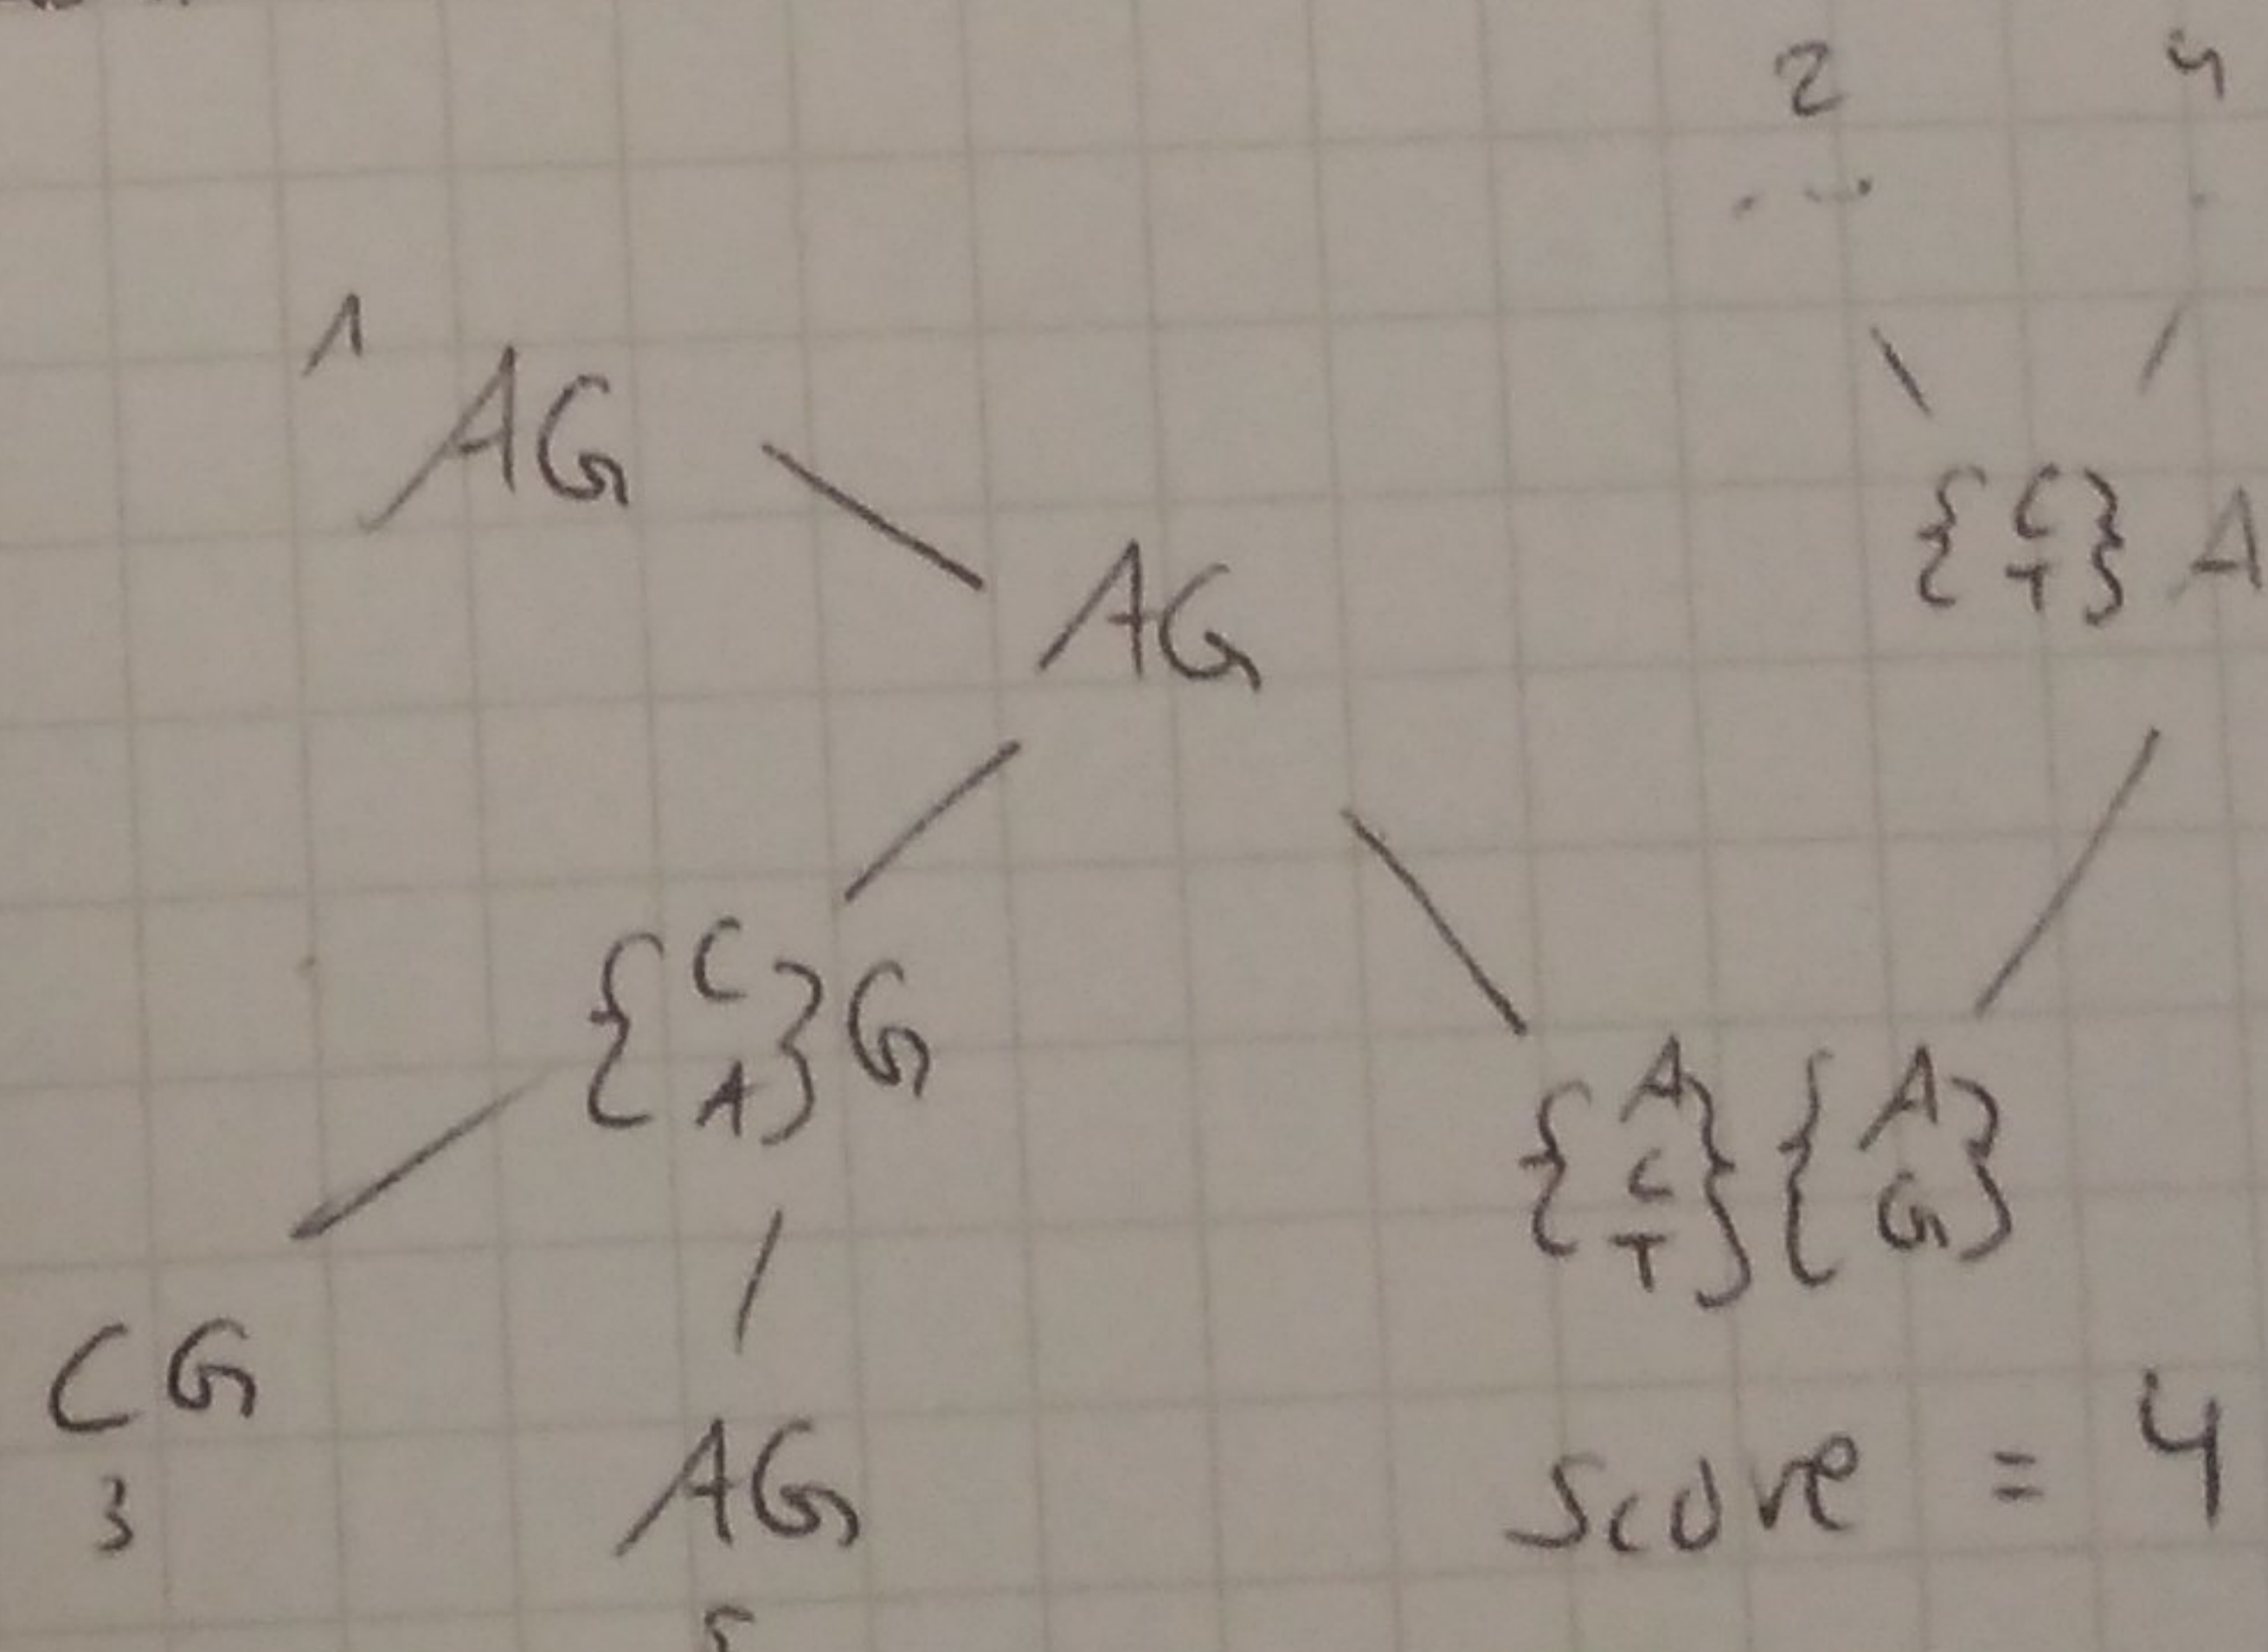 2 4
1 AG
{C T} A
AG
{C A} G
{A C T} {A G}
CG
3
AG
5
Score = 4